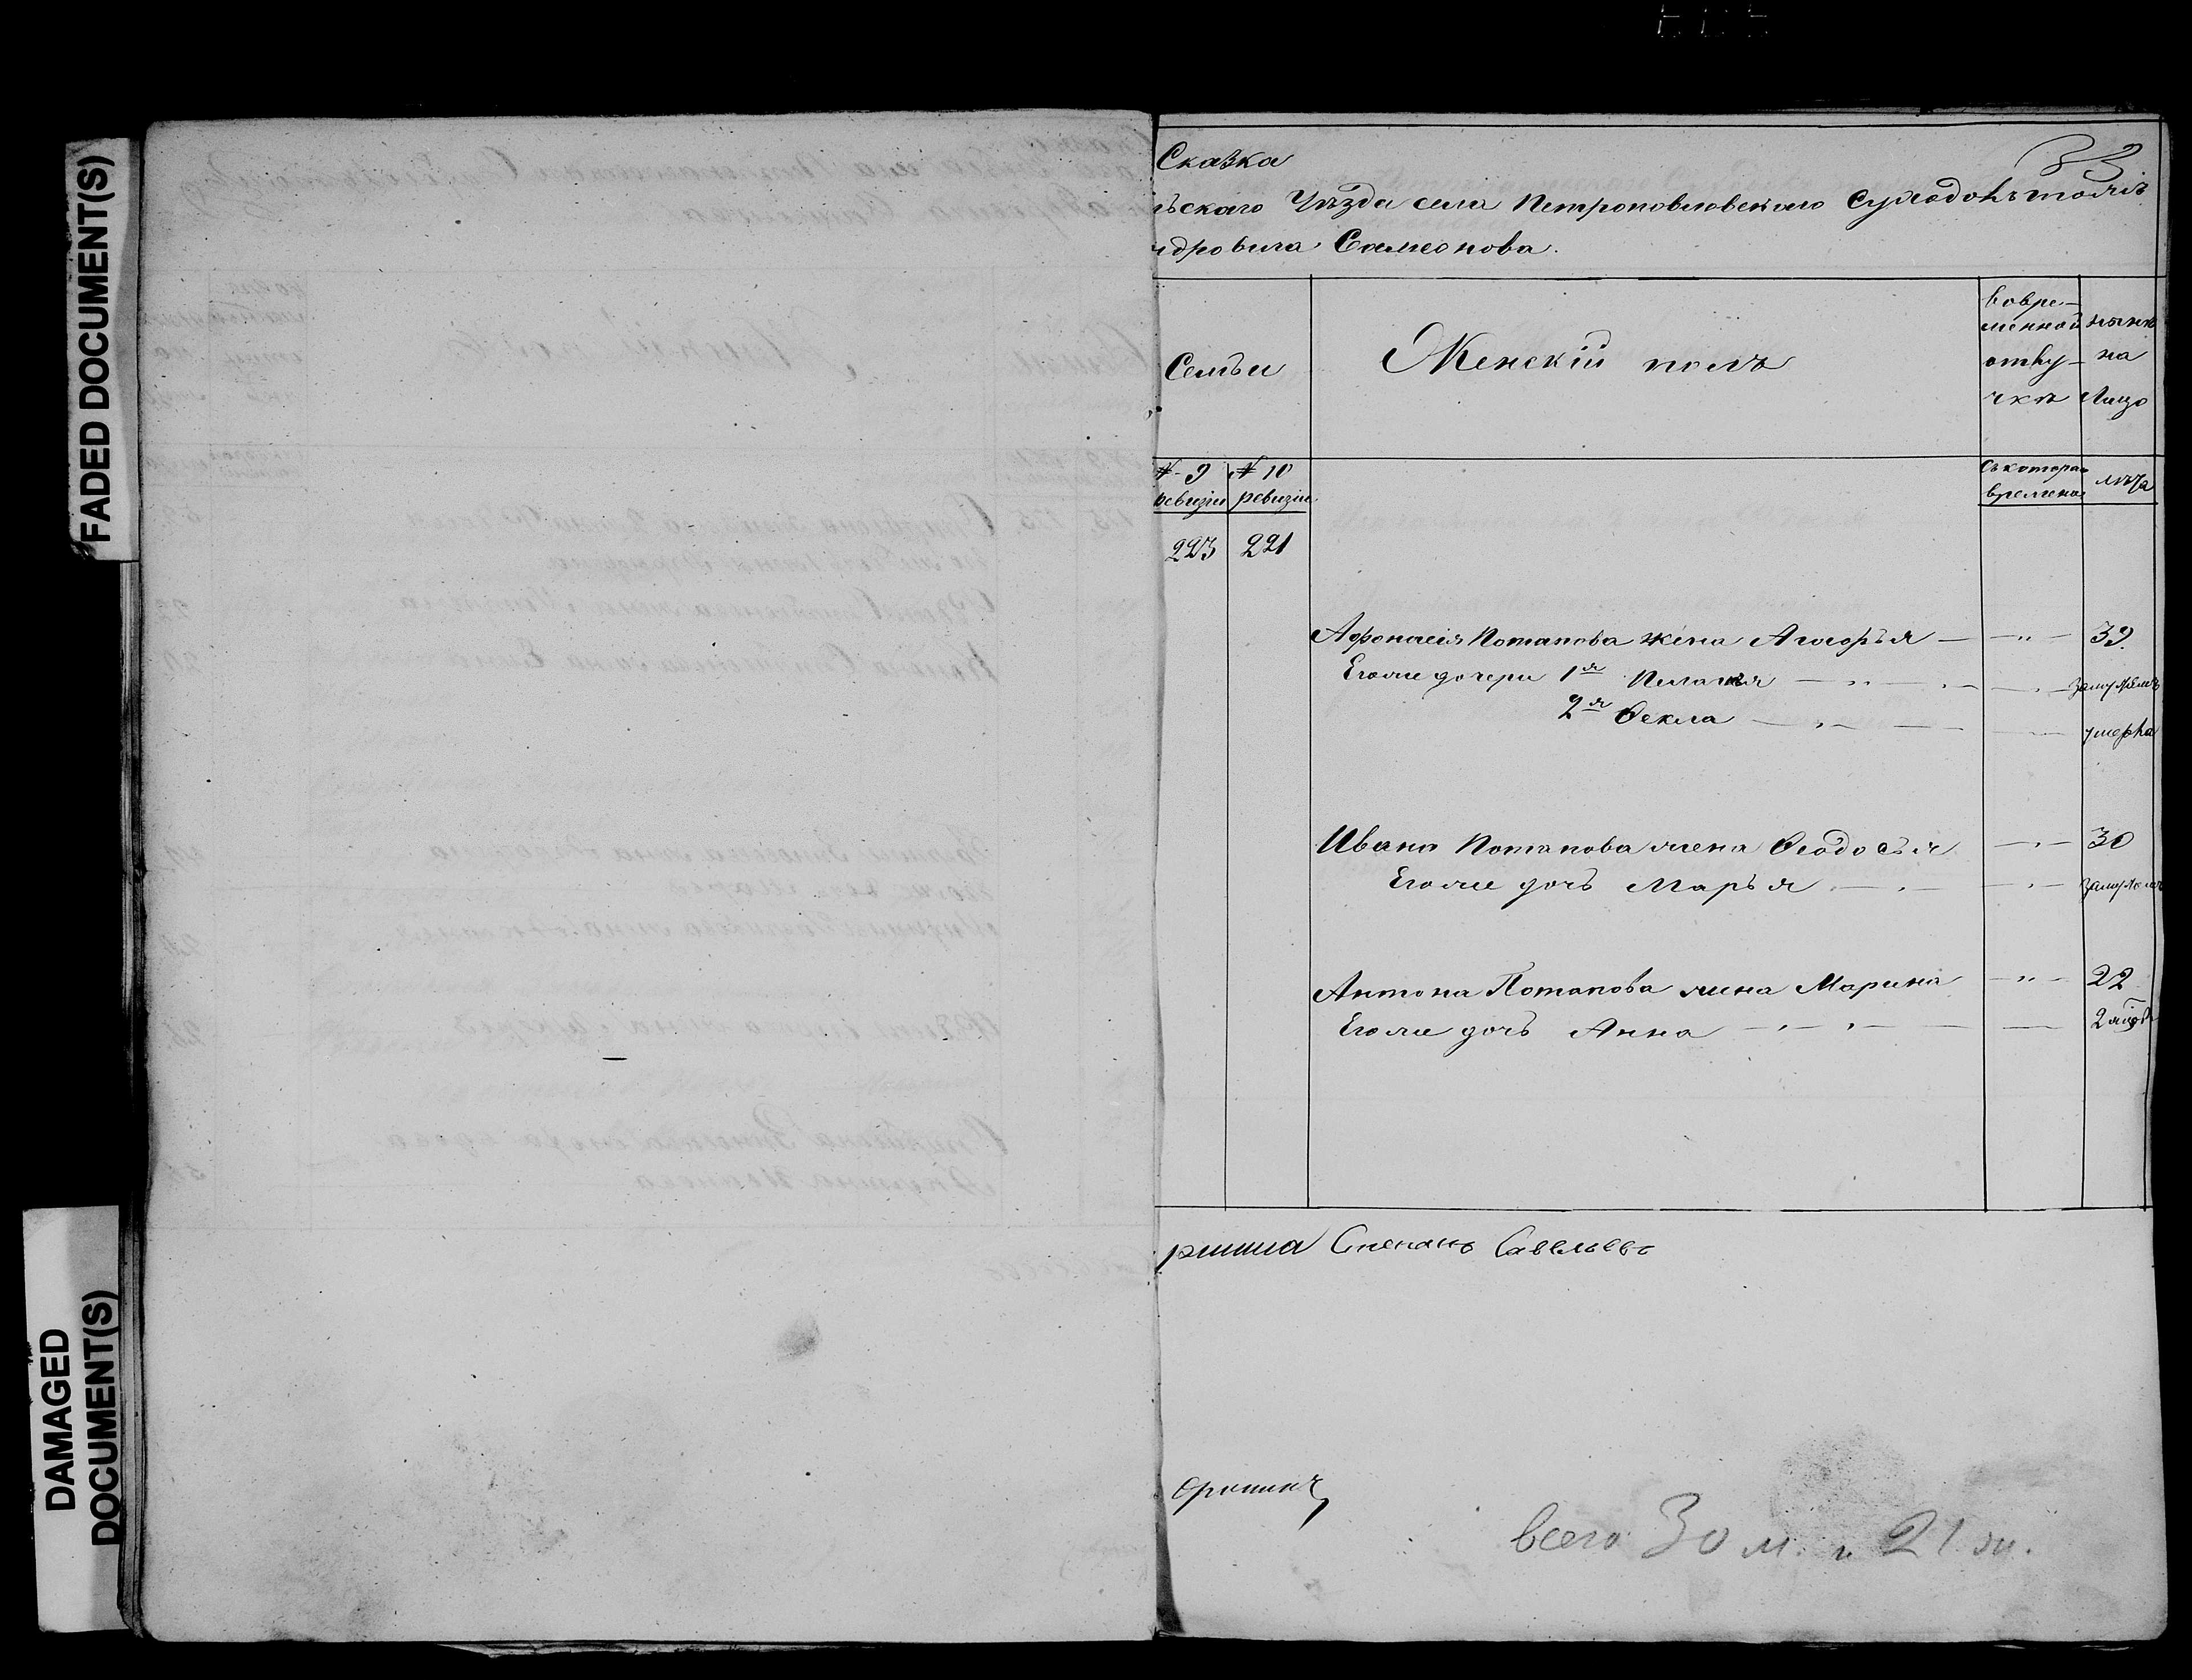 FADED DOCUMENT(S)
DAMAGED
DOCUMENT(S)
33
Сказка
ьскаго Уѣзда села Петропавловскаго Суходолъ тожъ
ндровича Самсонова.
Семьи
Женскій полъ
Во вре-
менной
отлу-
чкѣ
нынѣ
на
Лицо
№ 9
ревизіи
№ 10
ревизіи
съ котора
времени
лѣта
223 221
Афонасія Потапова жена Агафья — 39.
Его же дочери 1я Пелагѣя — замужемъ
2я Ѳекла — умерла
Ивана Потапова жена Ѳеодосья — 30
Его же дочь Марья — замужемъ
Антона Потапова жена Марина — 22
Его же дочь Анна — 2
ршина Степанъ Савельевъ
всего 30 м. и 21 ж.